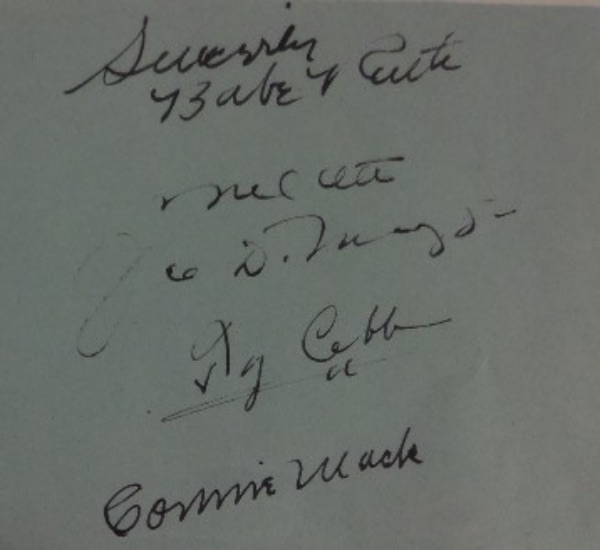 Sincerely
"Babe" Ruth
Mel Ott
Joe DiMaggio
Ty Cobb
Connie Mack